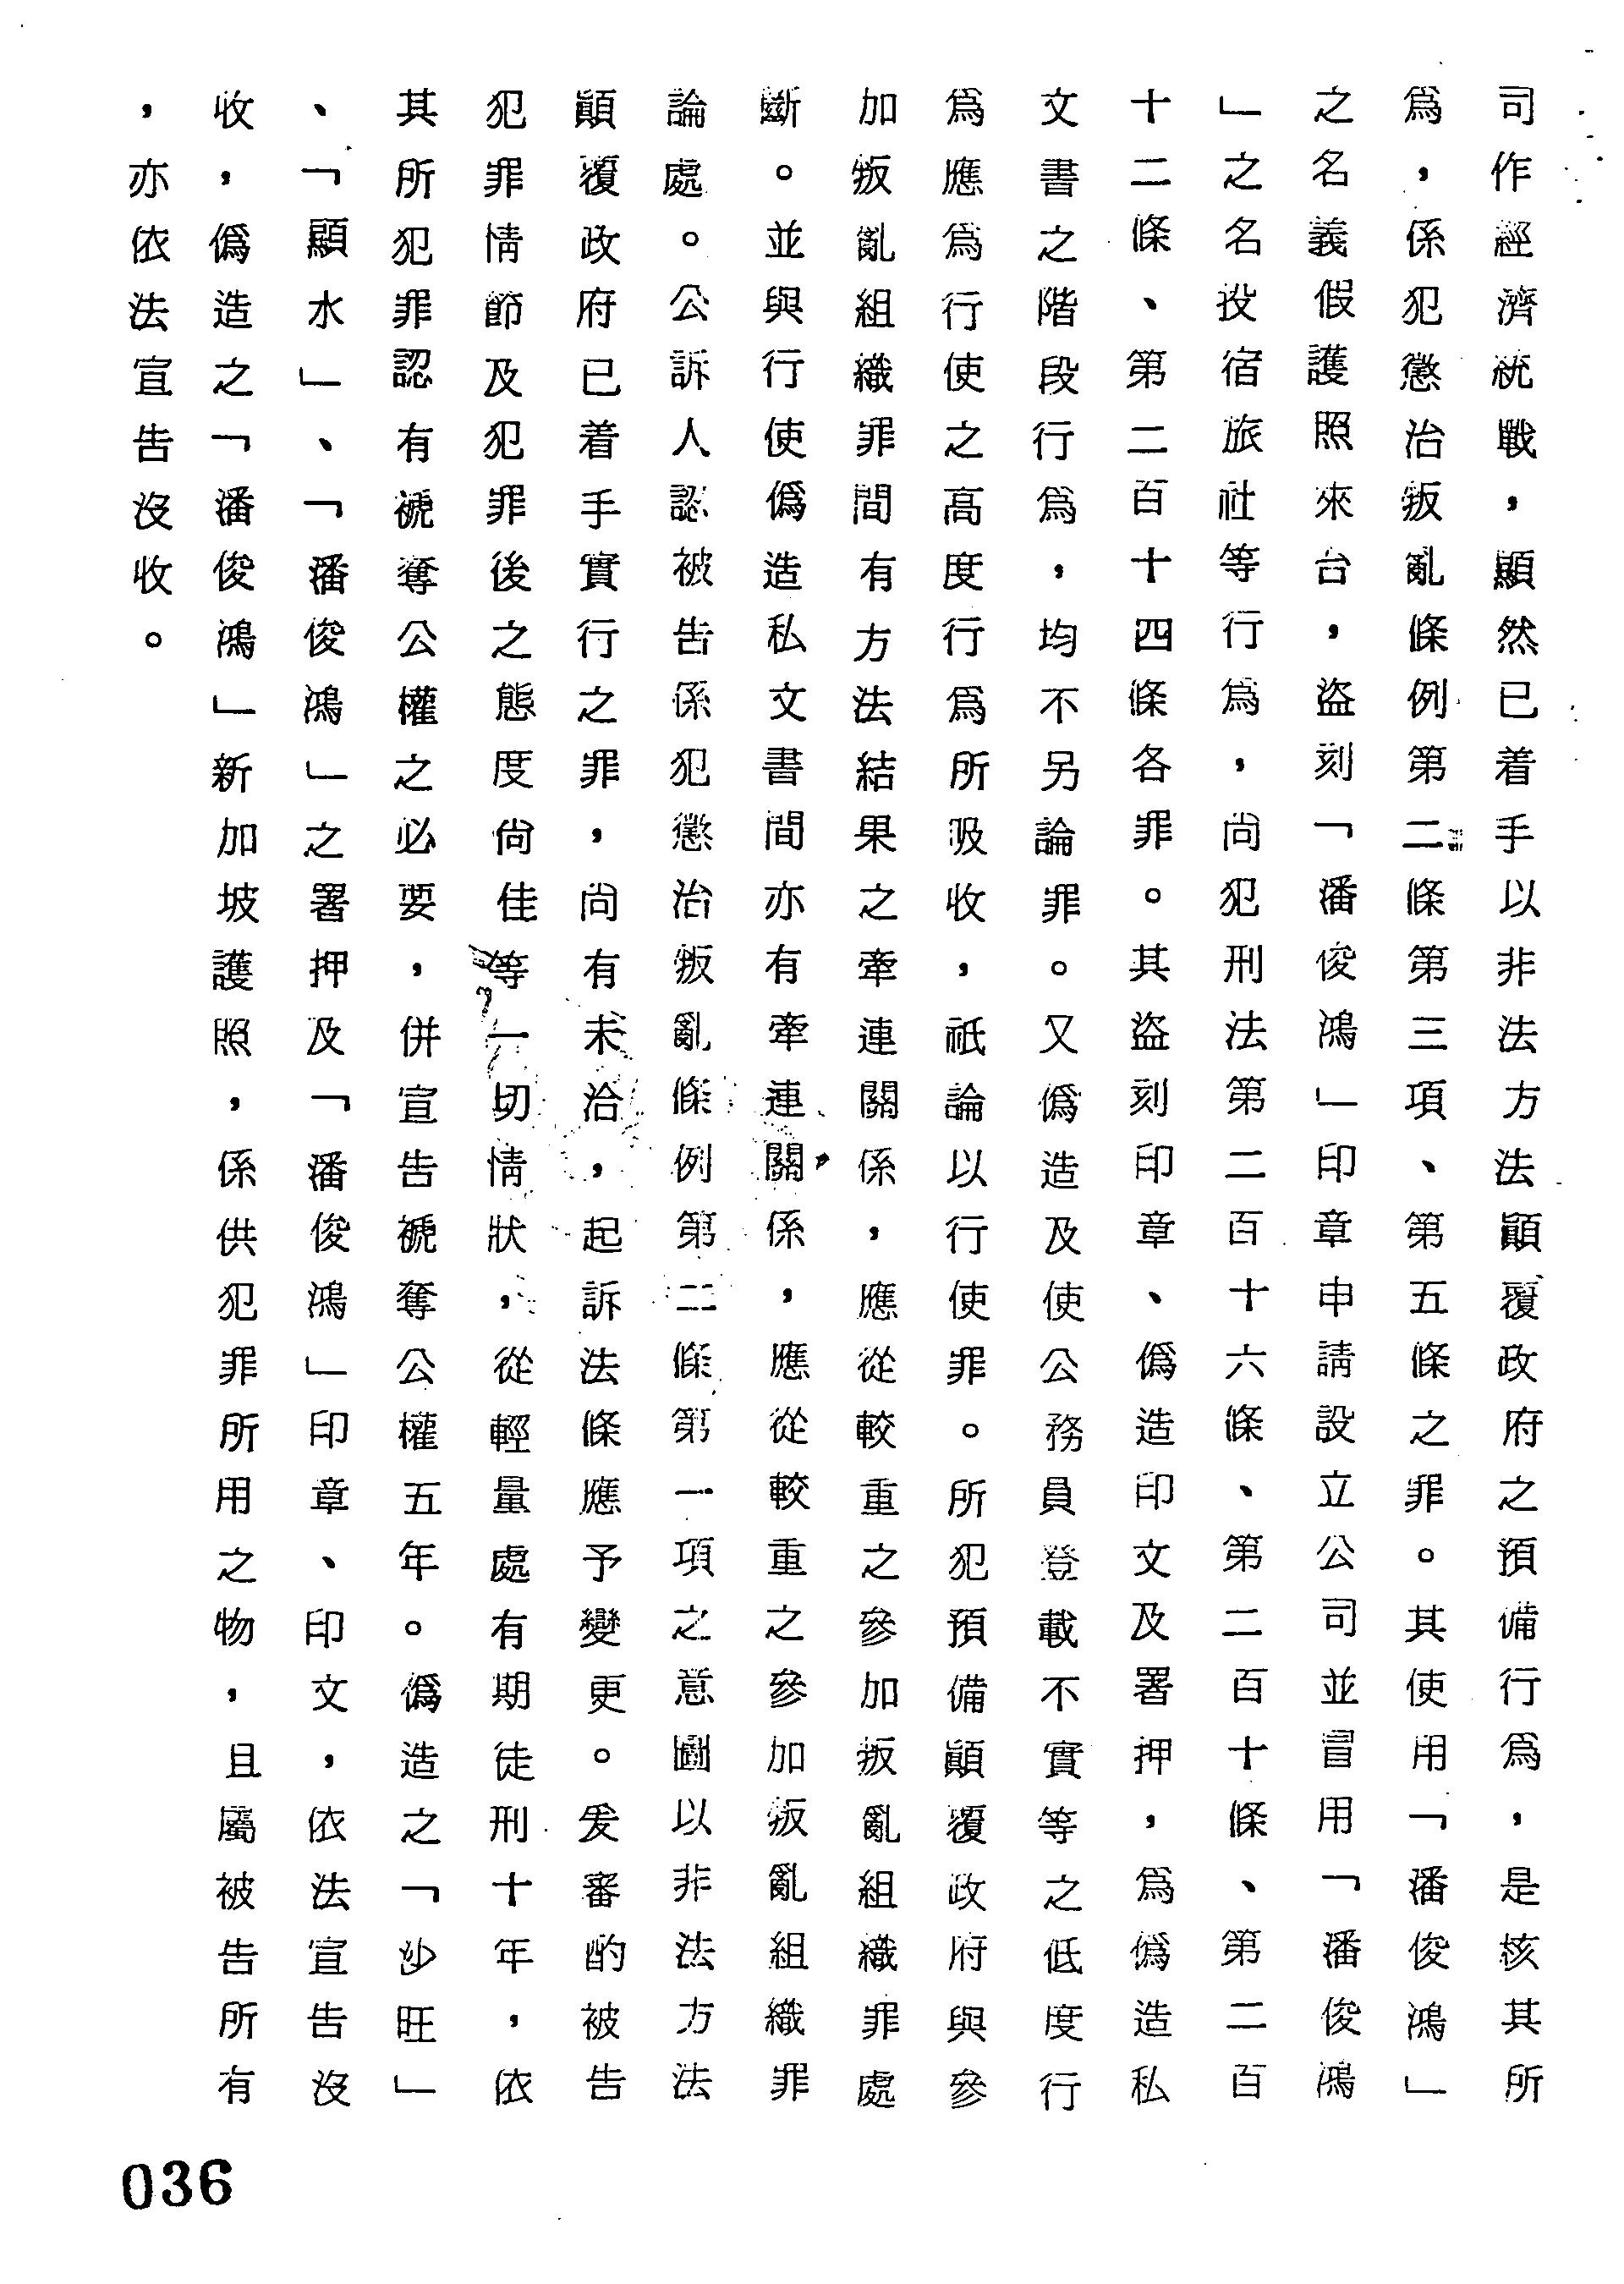 司作經濟統戰，顯然已着手以非法方法顚覆政府之預備行為，是核其所
為，係犯懲治叛亂條例第二條第三項、第五條之罪。其使用「潘俊鴻」
之名義假護照來台，盜刻「潘俊鴻」印章申請設立公司並冒用「潘俊鴻
」之名投宿旅社等行為，尚犯刑法第二百十六條、第二百十條、第二百
十二條、第二百十四條各罪。其盜刻印章、偽造印文及署押，為偽造私
文書之階段行為，均不另論罪。又偽造及使公務員登載不實等之低度行
為應為行使之高度行為所吸收，祇論以行使罪。所犯預備顚覆政府與參
加叛亂組織罪間有方法結果之牽連關係，應從較重之參加叛亂組織罪處
斷。並與行使偽造私文書間亦有牽連關係，應從較重之參加叛亂組織罪
論處。公訴人認被告係犯懲治叛亂條例第二條第一項之意圖以非法方法
顚覆政府已着手實行之罪，尚有未洽，起訴法條應予變更。爰審酌被告
犯罪情節及犯罪後之態度尚佳等一切情狀，從輕量處有期徒刑十年，依
其所犯罪認有褫奪公權之必要，併宣告褫奪公權五年。偽造之「沙旺」
、「顯水」、「潘俊鴻」之署押及「潘俊鴻」印章、印文，依法宣告沒
收，偽造之「潘俊鴻」新加坡護照，係供犯罪所用之物，且屬被告所有
，亦依法宣告沒收。
036